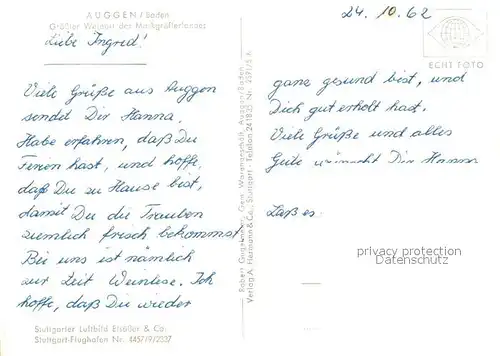 AUGGEN / Baden
Größter Weinort des Markgräflerlandes
Liebe Ingrid!
Viele Grüße aus Auggen
sendet Dir Hanna.
Habe erfahren, daß Du
Ferien hast, und hoffe,
daß Du zu Hause bist,
damit Du die Trauben
ziemlich frisch bekommst
Bei uns ist nämlich
zur Zeit Weinlese. Ich
hoffe, daß Du wieder
Stuttgarter Luftbild Elsäßer & Co.
Stuttgart-Flughafen Nr. 4457/9/2337
Gem. Warengeschäft, Auggen/Baden
Verlag A. Hermann & Co., Stuttgart - Telefon 241825
24. 10. 62
ECHT FOTO
ganz gesund bist, und
Dich gut erholt hast.
Viele Grüße und alles
Gute wünscht Dir Hanna
Laß es
privacy protection
www.ansichtskarten-lexikon.de